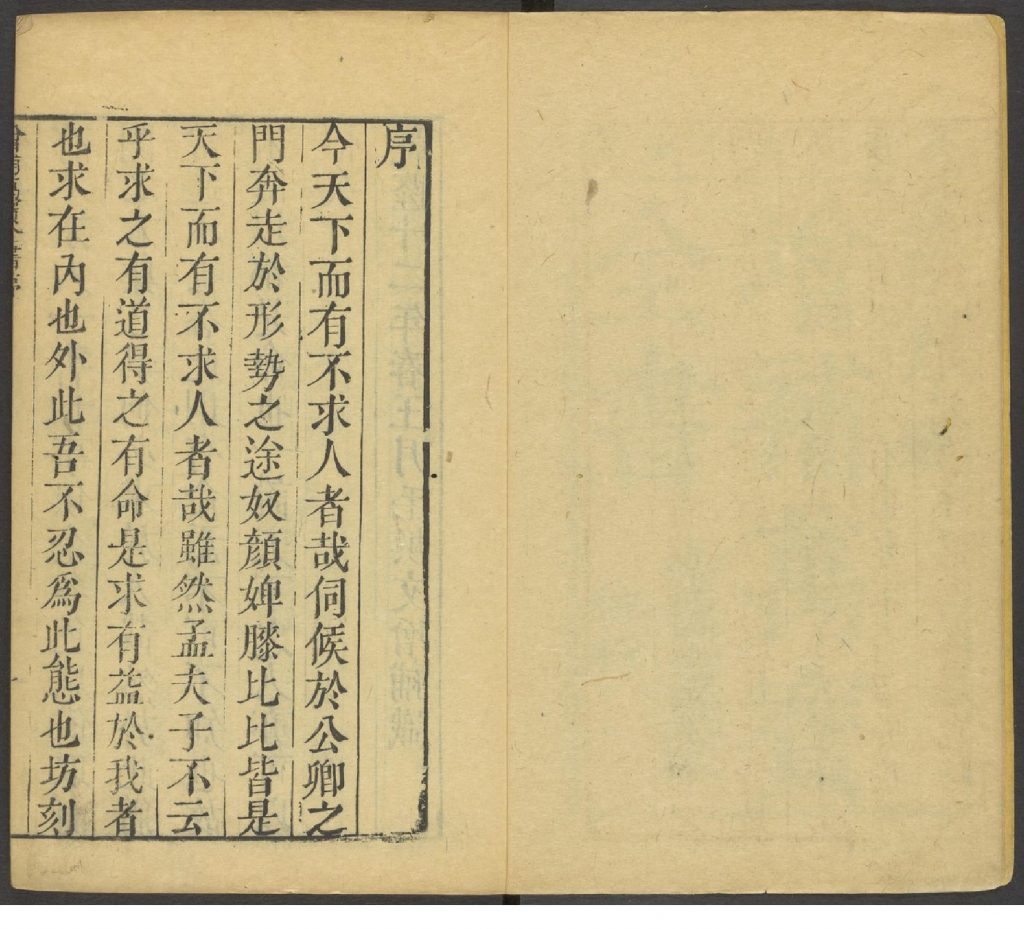 序
今天下而有不求人者哉伺候於公卿之
門奔走於形勢之途奴顏婢膝比比皆是
天下而有不求人者哉雖然孟夫子不云
乎求之有道得之有命是求有益於我者
也求在內也外此吾不忍爲此態也坊刻